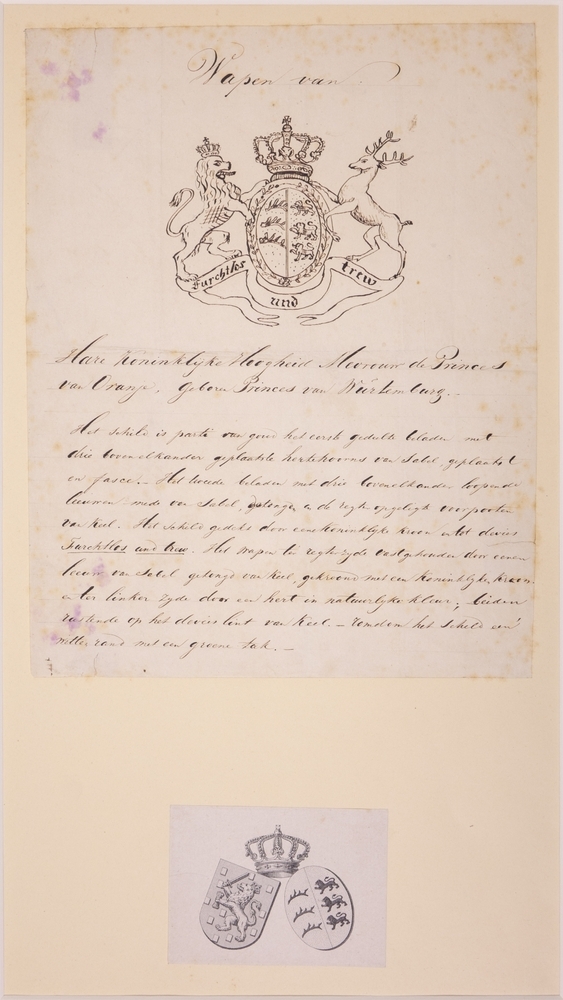 Wapen van
furchtlos und trew
Hare Koninklijke Hoogheid Mevrouw de Princes
van Oranje, geboren Princes van Würtemburg.—
Het schild is parti van goud het eerste gedeelte beladen met
drie bovenelkander geplaatste hertehoorns van Sabel, geplaatst
en fasce.— Het tweede beladen met drie bovenelkander loopende
leeuwen mede van Sabel, getongen en de regter opgeligte voorpooten
van Keel. Het schild gedekt door eene koninklijke kroon en tot devies
Furchtlos und trew. Het wapen ter regterzyde vastgehouden door eenen
leeuw van Sabel getongd van Keel, gekroond met een Koninklijke kroon
en ter linker zyde door een hert in natuurlyke kleur; beiden
rustende op het devies lint van Keel.— rondom het schild een
witte rand met een groene tak.—